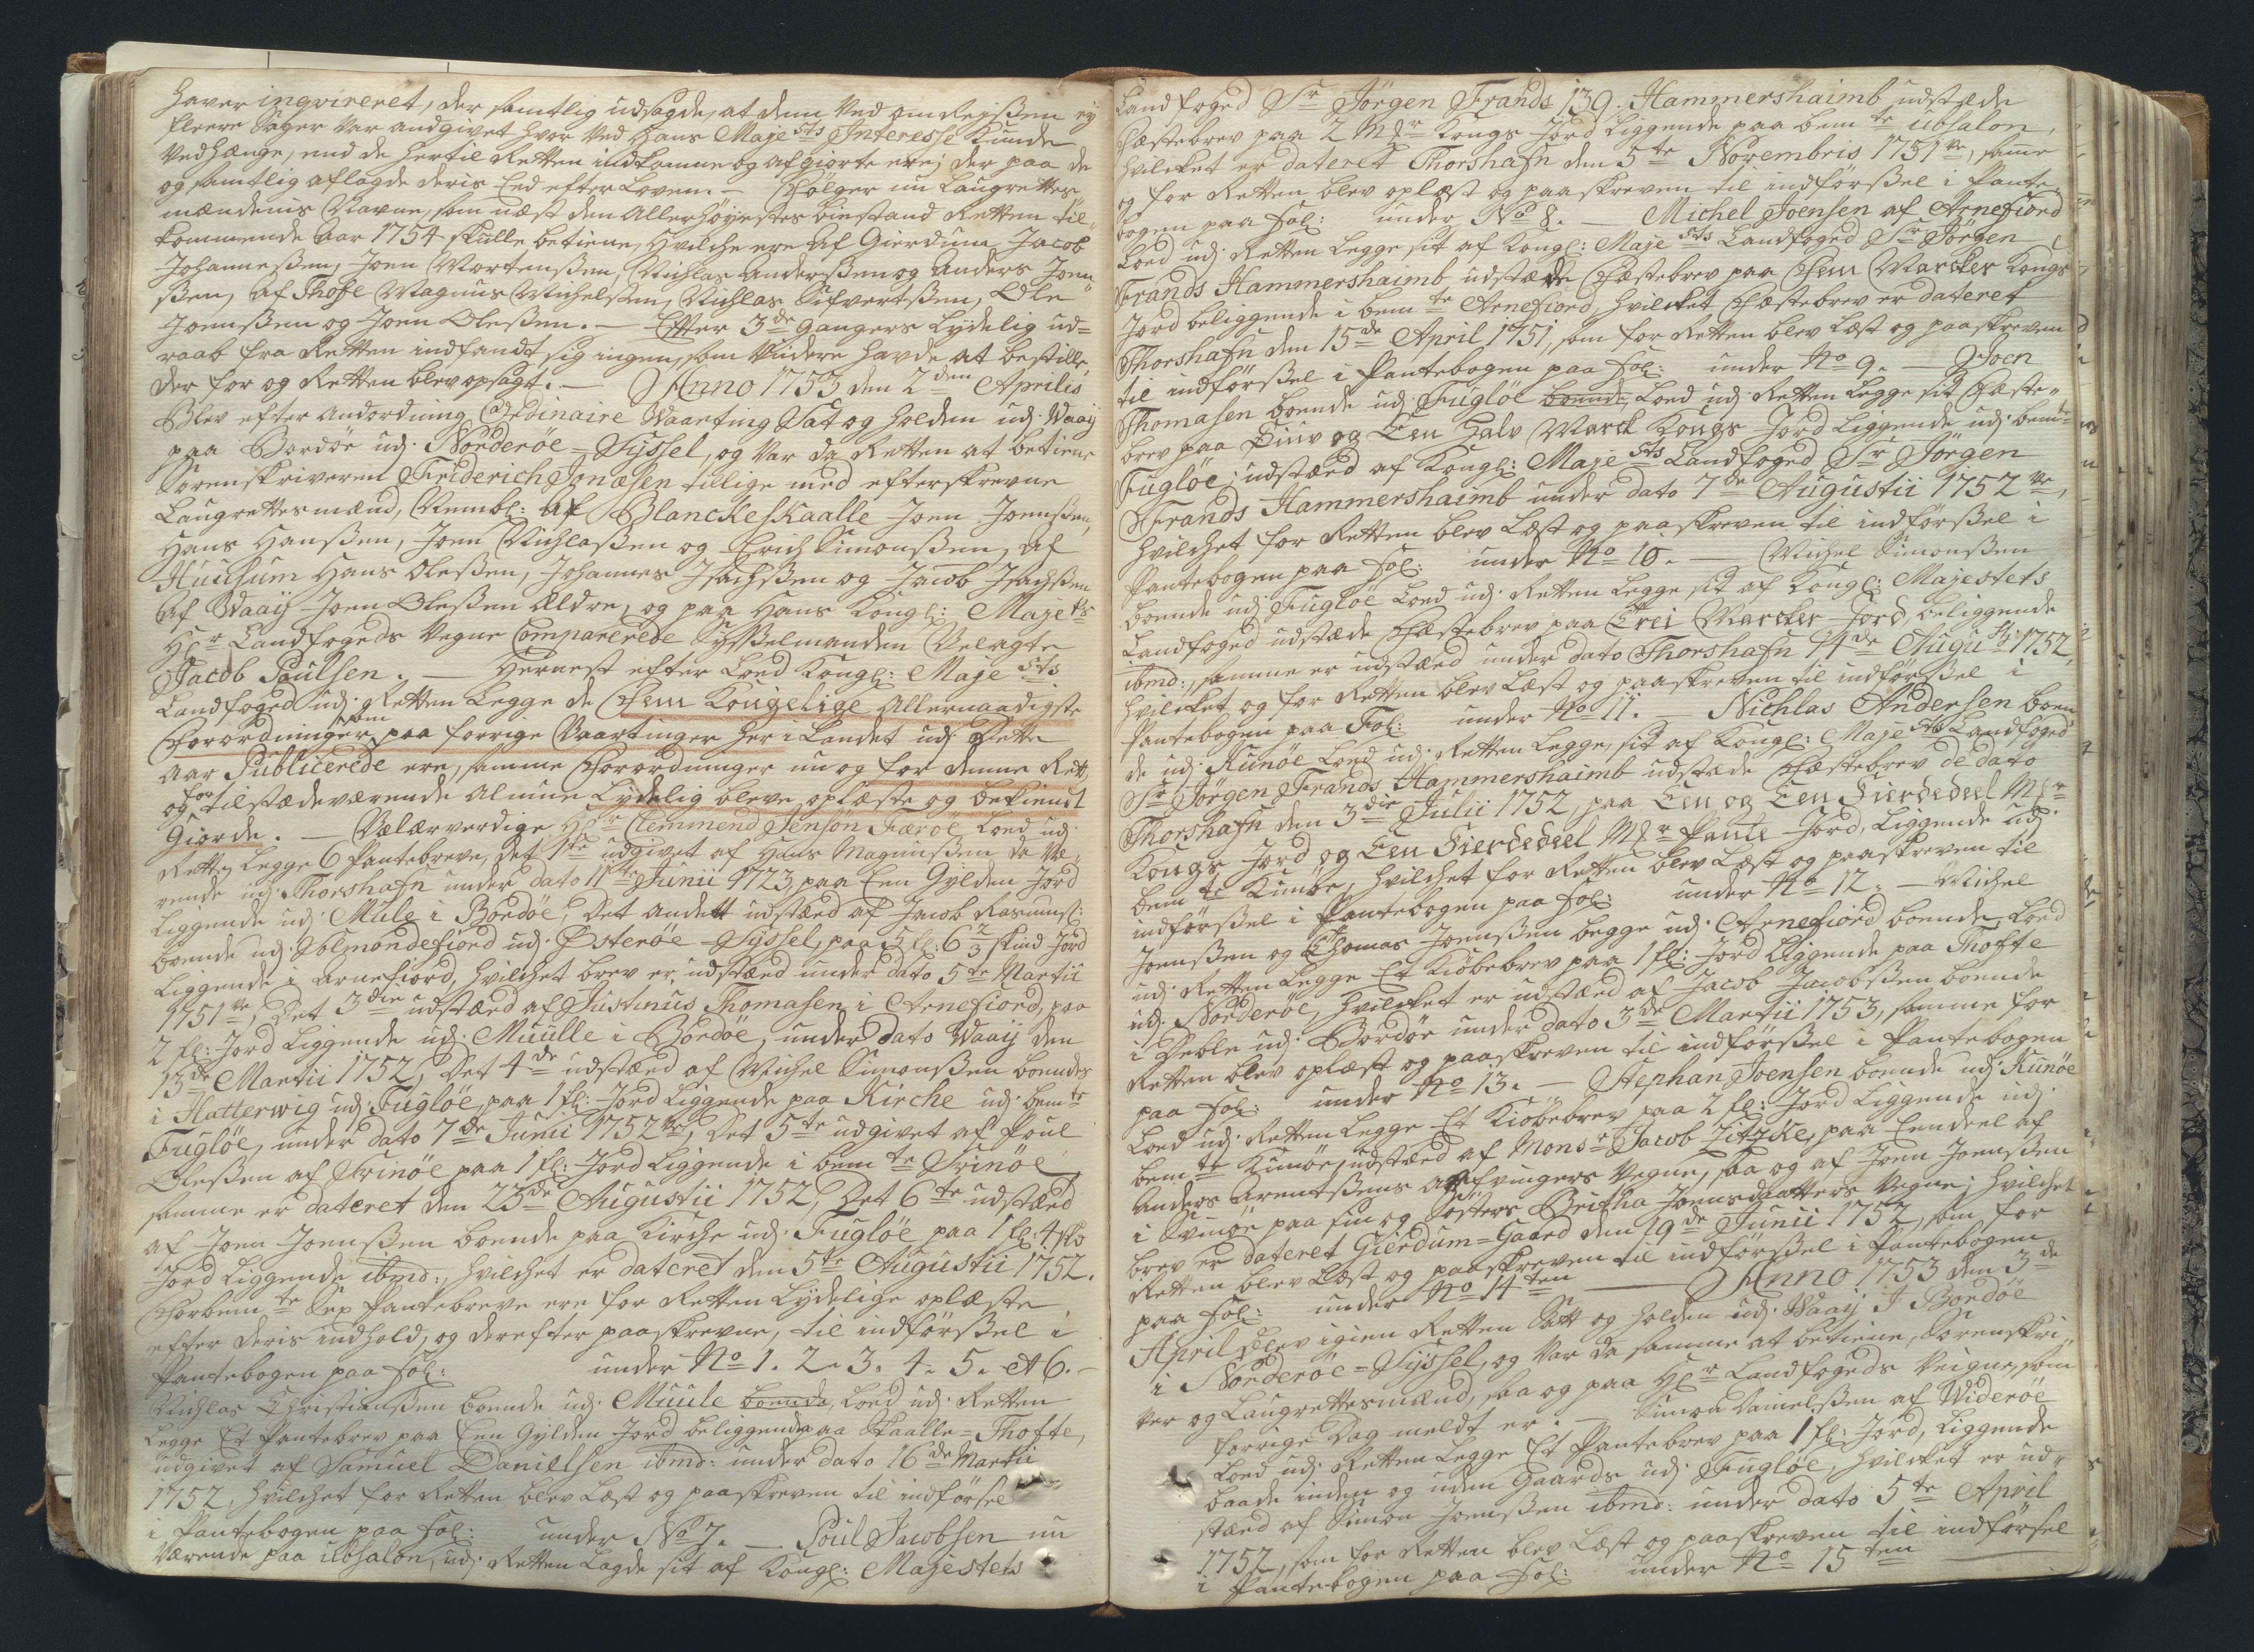 haver inqvireret, der samtlig udsagde, at dem ved omRejsen ej
fleere Sager var andgivet hvor ved Hans Maje sts Interesse Kunde
vedhænge, end de hertil Retten indkomne og afgiorte ere; der paa de
og samtlig aflagde deris Eed efter Loven. — Følger nu Laugrettes
mændenis Navne, som næst den Allerhøyestes biestand Retten til-
kommende aar 1754 skulle betiene, Hvilche ere Af Gierdum Jacob
Johannesen, Joen Mortensen, Nichlas Andersen og Anders Joen-
sen, af Thofe Magnus Michelsen, Nichlas Sifvertsen, Ole
Joensen og Joen Olesen. — Efter 3de Gangers Lydelig ud-
raab fra Retten indfandt sig ingen, som Viidere havde at bestille,
der for og Retten blev opsagt. — Anno 1753 den 2den Aprilis
Blev efter andordning Ordinaire Vaarting Sat og holden udj Waaij
paa Bordöe udj Norderöe-Syssel, og var da Retten at betiene
Sorenskriveren Friderich Jonæsen tillige med efterskrevne
Laugrettesmænd, Nembl: af Blanckeskaalle Joen Joensen,
Hans Hansen, Joen Nichlasen og Erich Simonsen, af
Huusum Hans Olesen, Johannes Isachsen og Jacob Isachsen
af Waaij Joen Olesen Ældre, og paa Hans Kongl: Maje ts
Hr Landfogeds Vegne Comparerede Sysselmanden Velagte
Jacob Poulsen. — Hernest efter Lod Kongl: Maje sts
Landfoged udj Retten Legge de Fem Kongelige Allernaadigste
Forordninger, som paa forrige Vaartinger her i Landet udj Dette
aar Publicerede ere, samme Forordninger nu og for denne Ret
og for tilstædeværende Almue Lydelig bleve oplæste og bekiendt
Giorde. — Velærverdige Hr Clemmend Jensön Færöe Loed udj
Retten Legge 6 Pantebreve, det 1te udgivet af Hans Magnusen da Væ-
rende udj Thorshafn under dato 11te Junii 1723, paa Een Gylden Jord
Liggende udj Mule i Bordöe, Det Andett udstæd af Jacob Rasmus:
boende udj Solmondefiord udj Österöe-Syssel, paa 3 fl: 6 2/3 skind Jord
Liggende i Arnefiord, hvilchet brev er udstæd under dato 5te Martii
1751 ve, Det 3die udstæd af Justinus Thomasen i Arnefiord, paa
2 fl: Jord Liggende udj Muulle i Bordöe, under dato Waaij den
13de Martii 1752, Det 4de udstæd af Michel Simonsen boendes
i Hatterwig udj Fuglöe, paa 1 fl: Jord Liggende paa Kirche udj bem te
Fuglöe, under dato 7de Junii 1752 ve, Det 5te udgivet af Poul
Olesen af Svinöe paa 1 fl: Jord Liggende i bem te Svinöe
samme er dateret den 23de Augustii 1752, Det 6te udstæd
af Joen Joensen boende paa Kirche udj Fuglöe paa 1 fl: 4 sk
Jord Liggende ibmd:, hvilchet er dateret den 5te Augustii 1752.
Forbem te Sex Pantebreve ere for Retten Lydelige oplæste
efter deris indhold, og derefter paaskrevne, til indförsel i
Pantebogen paa Fol: under No 1. 2. 3. 4. 5. et 6. —
Nichlas Christiansen boende udj Muule boende, Loed udj Retten
Legge Et Pantebrev paa Een Gylden Jord beliggende paa Skaalle-Thofte,
udgivet af Samuel Danielsen ibmd: under dato 16de Martii
1752, hvilchet for Retten blev Læst og paaskreven til indförsel
i Pantebogen paa Fol: under No 7. — Poul Jacobsen nu
værende paa Ubsalon, udj Retten Lagde sit af Kongl: Majestets
Landfoged Sr Jörgen Frands 139. Hammershaimb udstæde
Fæstebrev paa 2 Mkr Kongs Jord Liggende paa bem te Ubsalon,
hvilcket er dateret Thorshafn den 5te Novembris 1751 ve, samme
og for Retten blev oplæst og paaskreven til indförsel i Pante-
bogen paa Fol: under No 8. — Michel Joensen af Arnefiord
Loed udj Retten Legge sit af Kongl: Maje sts Landfoged Sr Jörgen
Frands Hammershaimb udstæde Fæstebrev paa Fem Marcker Kongs
Jord beliggende i bem te Arnefiord, hvilcket Fæstebrev er dateret
Thorshafn den 15de April 1751, som for Retten blev Læst og paaskreven
til indförsel i Pantebogen paa Fol: under No 9. — Joen
Thomasen boende udj Fuglöe boende, Loed udj Retten Legge sit Fæste-
brev paa Fiuv og Een Halv Marck Kongs Jord Liggende udj bem te
Fuglöe; udstæd af Kongl: Maje sts Landfoged Sr Jörgen
Frands Hammershaimb under dato 7de Augustii 1752 ve,
hvilchet for Retten blev Læst og paaskreven til indförsel i
Pantebogen paa Fol: under No 10. — Michel Simonsen
boende udj Fuglöe Loed udj Retten Legge sit af Kongl: Majestets
Landfoged udstæde Fæstebrev paa Trei Marcker Jord, beliggende
ibmd:, samme er udstæd under dato Thorshafn 14de Augusti 1752,
hvilcket og for Retten blev Læst og paaskreven til indförsel i
Pantebogen paa Fol: under No 11. — Nichlas Andersen boen
de udj Kunöe Loed udj Retten Legge, sit af Kongl: Maje sts Landfoged
Sr Jörgen Frands Hammershaimb udstæde Fæstebrev de dato
Thorshafn den 3die Julii 1752, paa Een og Een Fierdedeel Mkr
Kongs Jord og Een Fierdedeel Mkr Pante Jord, Liggende udj
bem te Kunöe, hvilchet for Retten blev Læst og paaskreven til
indförsel i Pantebogen paa Fol: under No 12. — Michel
Joensen og Thomas Joensen begge udj Arnefiord boende, Loed
udj Retten Legge Et Kiöbebrev paa 1 fl: Jord Liggende paa Thofte
udj Norderöe, hvilcket er udstæd af Jacob Jacobsen boende
i Deble udj Bordöe under dato 3de Martii 1753, samme for
Retten blev oplæst og paaskreven til indförsel i Pantebogen
paa Fol: under No 13. — Stephan Joensen boende udj Kunöe
Loed udj Retten Legge Et Kiöbebrev paa 2 fl: Jord Liggende udj
bem te Kunöe, udstæd af Mons r Jacob Zitzke, paa Eendeel af
Anders Arentsens Arfvingers Vegne, saa og af Joen Joensen
i Svinöe paa sin og Sösters Britha Joensdaatters Vegne; hvilchet
brev er dateret Gierdum-Gaard den 19de Junii 1752, som for
Retten blev Læst og paaskreven til indförsel i Pantebogen
paa Fol: under No 14ten — Anno 1753 den 3de
April, blev igien Retten Satt og holden udj Waaij I Bordöe
i Norderöe-Syssel, og var da samme at betiene, Sorenskri-
ver og Laugrettesmænd, saa og paa Hr Landfogeds Veigne, som
forrige Dag meldt er. — Simon Danielsen af Wideröe
Loed udj Retten Legge Et Pantebrev paa 1 fl: Jord, Liggende
baade inden og uden Gaards udj Fuglöe, hvilcket er ud-
stæd af Simon Joensen ibmd: under dato 5te April
1752, som for Retten blev Læst og paaskreven til indförsel
i Pantebogen paa Fol: under No 15ten